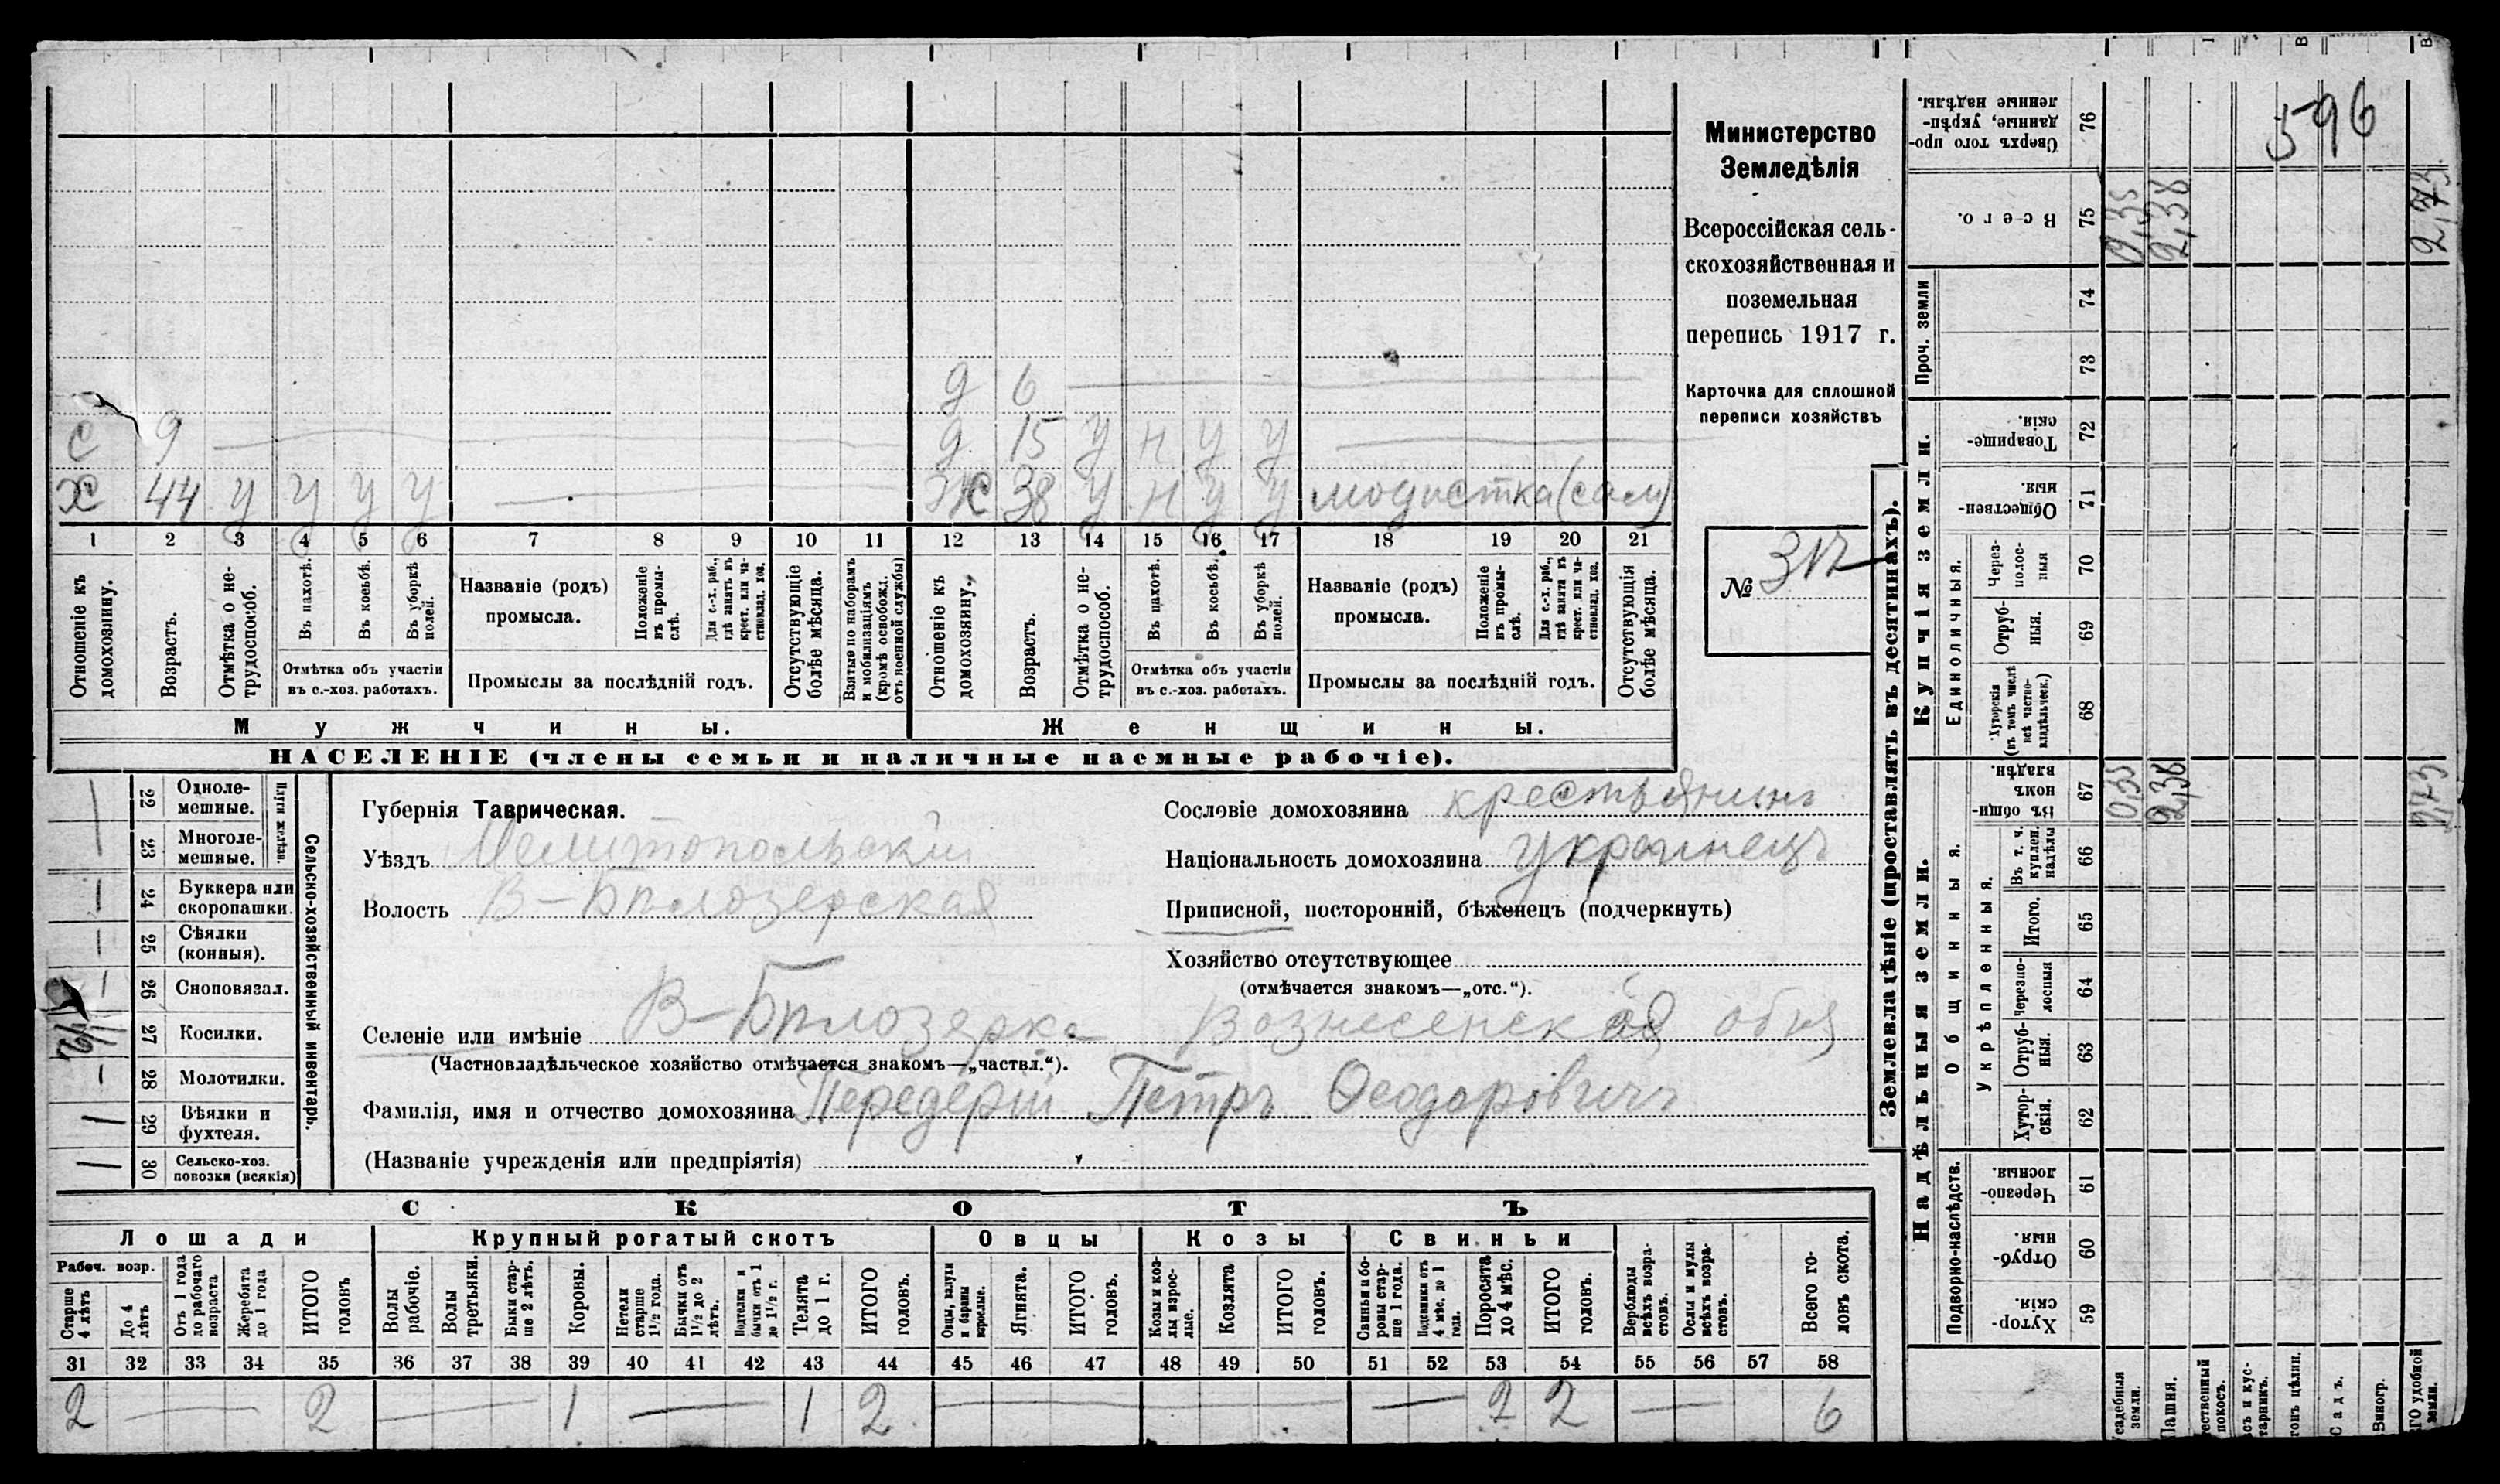 596
Министерство
Земледѣлія
Всероссійская сель-
скохозяйственная и
поземельная
перепись 1917 г.
Карточка для сплошной
переписи хозяйствъ
№ 312
д 6
с 9 д 15 у н у у
х 44 у у у у ж 38 у н у у модистка (сам)
1 2 3 4 5 6 7 8 9 10 11 12 13 14 15 16 17 18 19 20 21
Отношеніе къ домохозяину.
Возрастъ.
Отмѣтка о не-трудоспособ.
Въ пахотѣ.
Въ косьбѣ.
Въ уборкѣ полей.
Отмѣтка объ участіи
въ с.-хоз. работахъ.
Названіе (родъ)
промысла.
Положеніе въ промы-слѣ.
Для с.-х. раб., гдѣ занятъ въ крест. или ча-стновлад. хоз.
Промыслы за послѣдній годъ.
Отсутствующіе болѣе мѣсяца.
Взятые по наборамъ и мобилизаціямъ (кромѣ освобожд. отъ военной службы)
Отношеніе къ домохозяину.
Возрастъ.
Отмѣтка о не-трудоспособ.
Въ пахотѣ.
Въ косьбѣ.
Въ уборкѣ полей.
Отмѣтка объ участіи
въ с.-хоз. работахъ.
Названіе (родъ)
промысла.
Положеніе въ промы-слѣ.
Для с.-х. раб., гдѣ занятъ въ крест. или ча-стновлад. хоз.
Промыслы за послѣдній годъ.
Отсутствующія болѣе мѣсяца.
Мужчины. Женщины.
НАСЕЛЕНІЕ (члены семьи и наличные наемные рабочіе).
Сельско-хозяйственный инвентарь.
Плуги желѣзн.
22 Одноле-мешные.
23 Многоле-мешные.
24 Буккера или скоропашки.
25 Сѣялки (конныя).
26 Сноповязал.
27 Косилки.
28 Молотилки.
29 Вѣялки и фухтеля.
30 Сельско-хоз. повозки (всякія)
Губернія Таврическая.
Уѣздъ Мелитопольскій
Волость В-Бѣлозерская
Сословіе домохозяина крестьянинъ
Національность домохозяина украинецъ
Приписной, посторонній, бѣженецъ (подчеркнуть)
Хозяйство отсутствующее
(отмѣчается знакомъ—„отс.“).
Селеніе или имѣніе В-Бѣлозерка Вознесенская
(Частновладѣльческое хозяйство отмѣчается знакомъ—„частвл.“).
Фамилія, имя и отчество домохозяина Передерій Петръ Ѳеодоровичъ
(Названіе учрежденія или предпріятія)
СКОТЪ
Лошади Крупный рогатый скотъ Овцы Козы Свиньи
Рабоч. возр.
Старше 4 лѣтъ
До 4 лѣтъ
Отъ 1 года до рабочаго возраста
Жеребята до 1 года
ИТОГО головъ
Волы рабочіе.
Волы третьяки.
Быки стар-ше 2 лѣтъ.
Коровы.
Нетели старше 1½ года.
Бычки отъ 1½ до 2 лѣтъ.
Подтелки и бычки отъ 1 до 1½ г.
Телята до 1 г.
ИТОГО головъ.
Овцы, валухи и бараны взрослые.
Ягнята.
ИТОГО головъ.
Козы и коз-лы взрос-лые.
Козлята
ИТОГО головъ.
Свиньи и бо-ровы стар-ше 1 года.
Подсвинки отъ 4 мѣс. до 1 года.
Поросята до 4 мѣс.
ИТОГО головъ.
Верблюды всѣхъ возра-стовъ.
Ослы и мулы всѣхъ возра-стовъ.
Всего го-ловъ скота.
31 32 33 34 35 36 37 38 39 40 41 42 43 44 45 46 47 48 49 50 51 52 53 54 55 56 57 58
2 — 2 — 1 — 1 2 — — 2 2 — 6
Землевладѣніе (проставлять въ десятинахъ).
Надѣльныя земли.
Купчія земли.
Проч. земли
Подворно-наслѣдств.
Общинныя.
Укрѣпленныя.
Единоличныя.
Хутор-скія. 59
Отруб-ныя. 60
Черезпо-лосныя. 61
Хутор-скія. 62
Отруб-ныя. 63
Черезпо-лосныя 64
Итого. 65
Въ т. ч. куплен. надѣлы 66
Въ общин-номъ владѣн. 67 0,35 2,38 2,73
Хуторскія (въ томъ числѣ всѣ частно-владѣльческ.) 68
Отруб-ныя. 69
Через-полос-ныя 70
Обществен-ныя. 71
Товарище-скія. 72
73
74
Всего. 75 0,35 2,38 2,73
Сверхъ того про-данные, укрѣп-ленные надѣлы. 76
Усадебныя земли.
Пашня.
покосъ.
Садъ.
Виногр.
удобной земли.